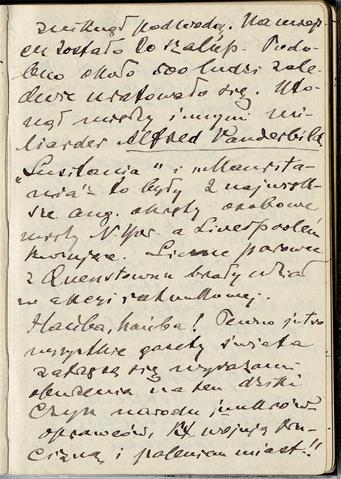 zniknął pod wodą. Na miejs-
cu zostało 20 szalup. Podo-
bno około 500 ludzi zale-
dwie uratowało się. Uto-
nął między innymi mi-
liarder Alfred Vanderbild
"Lusitania" i "Maurita-
nia" to były 2 najwięk-
sze ang. okręty osobowe
między N.Yor. a Liverpoolem
kursujące. Liczne parowce
z Queenstownu brały udział
w akcyi ratunkowej.
Hańba, hańba! Pewno jutro
wszystkie gazety świata
zatrzęsą się wyrazami
oburzenia na ten dziki
czyn narodu junkrów-
oprawców, wojują tru-
cizną i paleniem miast!!